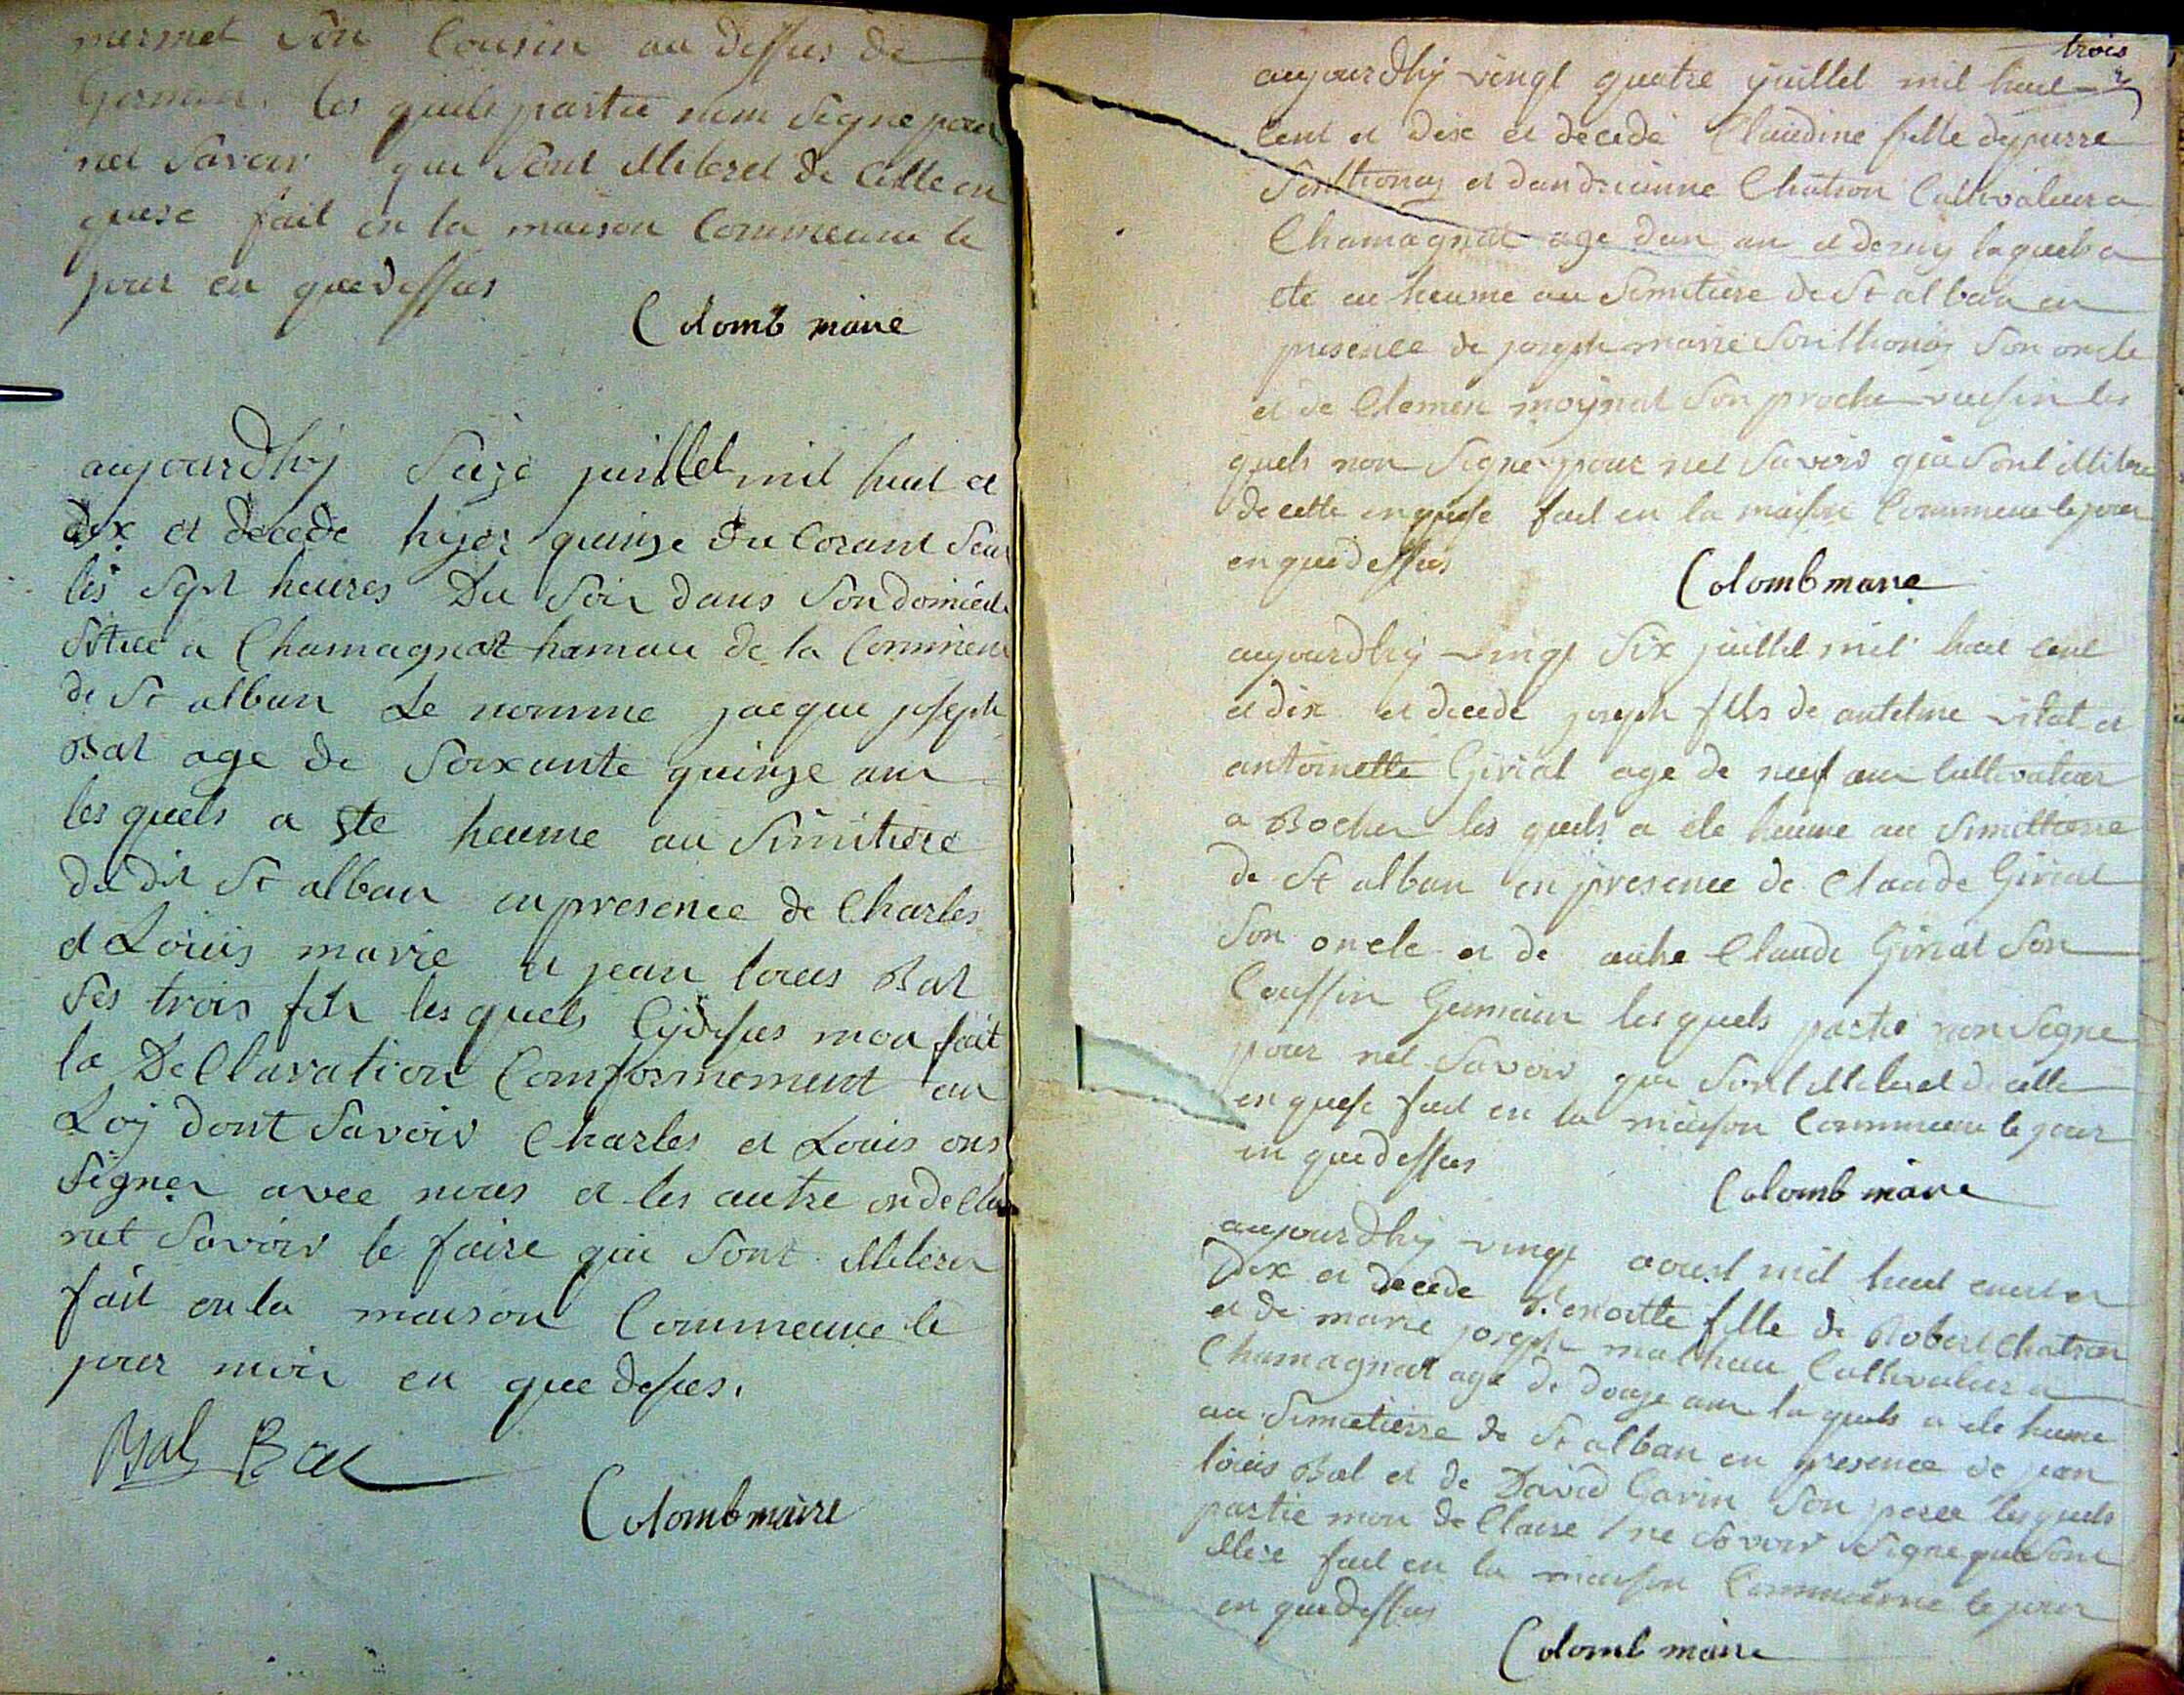 mermet son Cousin au dessus de
Germin. les quels partie nom Signe pour
net Savoir que Sont illiteret de Cette en
quese fait en la maison Commeune le
jour en quedessus
Colomb maire
aujourdhÿ Seize juillet mil huit et
dix et decede hijer quinze du Corant Sur
les Sept heures Du Soir dans Son domicile
Situee a Chamagnat hamau de la Commeune
de St alban Le nomme jacque joseph
Bal age de Soixante quinze ans
les quels a ete heume au Simitiere
du dit St alban en presence de Charles
et Loüis marie et jean loues Bal
Ses trois fils les quels Cÿdesus mon fait
la DeClaration Comformement au
Loÿ dont Savoir Charles et Louis ons
Signer avec nous et les autre on de Clar
net Savoir le faire que Sont illiteret
fait en la maison Commeune le
jour mois en que desus.
Bal Bal
Colomb maire
trois
aujourdhÿ vingt quatre juillet mil huit
Cent et dix et decede Claudine fille de pierre
Sonthonax et dandrianne Chatron Cultivateur a
Chamagnat age dun an et demÿ laquel a
ete en heume au Simitiere de St alban en
presence de joseph marie Sonthonax Son oncle
et de Clemen moÿnat Son proche voissin les
quels non Signe pour net Savoir que Sont illitere
de cette enquese fait en la maison Commeune le jour
en quedessus
Colomb maire
aujourdhÿ vingt Six juillet mil huit Cent
et dix et decede joseph fils de antelme vitat et
antoinette Girial age de neuf ans Cultivateur
a Bocher les quels a ete heume au Simittiere
de St alban en presence de Claude Girial
Son oncle et de autre Claude Girial Son
Coussin Germain les quels partie non Signe
pour net Savoir que Sont illiteret de cette
en quese fait en la maison Commeune le jour
en quedessus
Colomb maire
aujourdhÿ vingt aoust mil huit cent et
Dix et decede Benoitte fille de Robert Chatron
et de marie joseph mathieu Cultivateur a
Chamagnat age de douze ans la quels a ete heume
au Simetierre de St alban en presence de jean
loües Bal et de David Garin Son parer les quels
partie mon de Clare ne Savoir Signe que Sont
illere fait en la maison Commeune le jour
en quedessus
Colomb maire